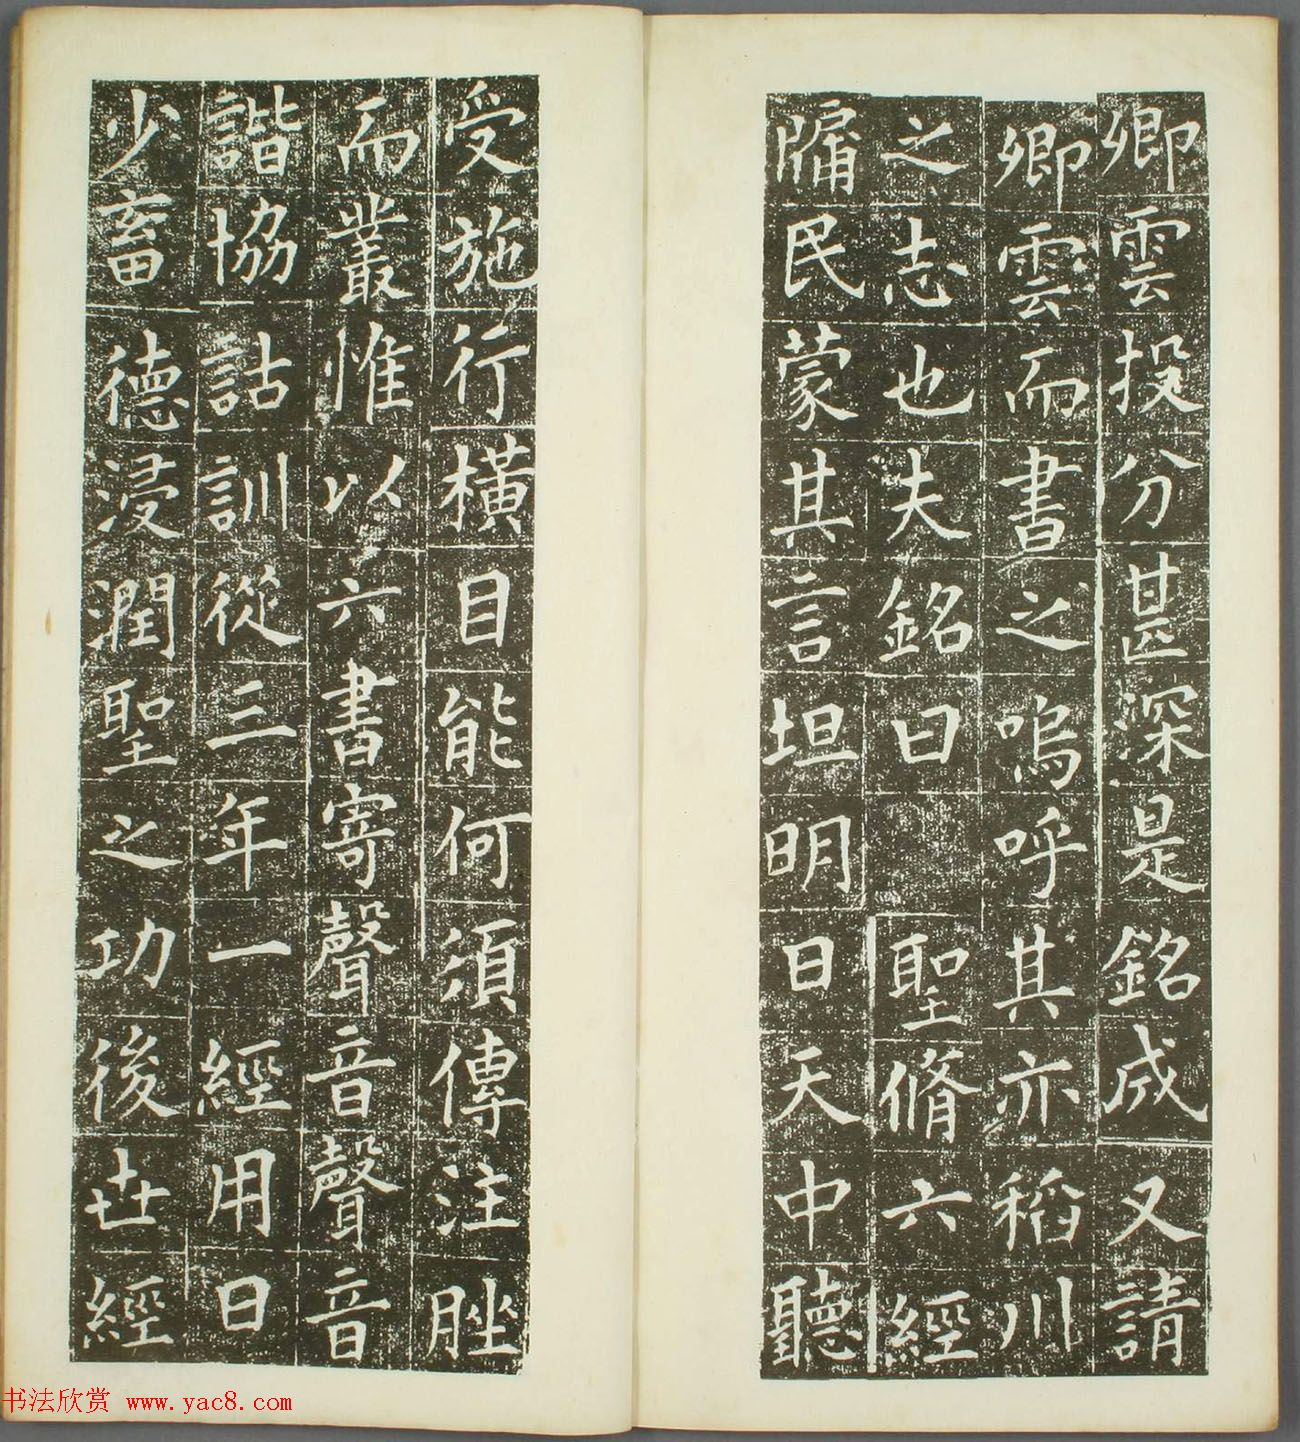 卿雲投分甚深是銘成又請
卿雲而書之嗚呼其亦稻川
之志也夫銘曰 聖脩六經
牖民蒙其言坦明日天中聽
受施行橫目能何須傳注脞
而叢惟以六書寄聲音聲音
諧協詁訓從三年一經用日
少畜德浸潤聖之功後世經
书法欣赏 www.yac8.com